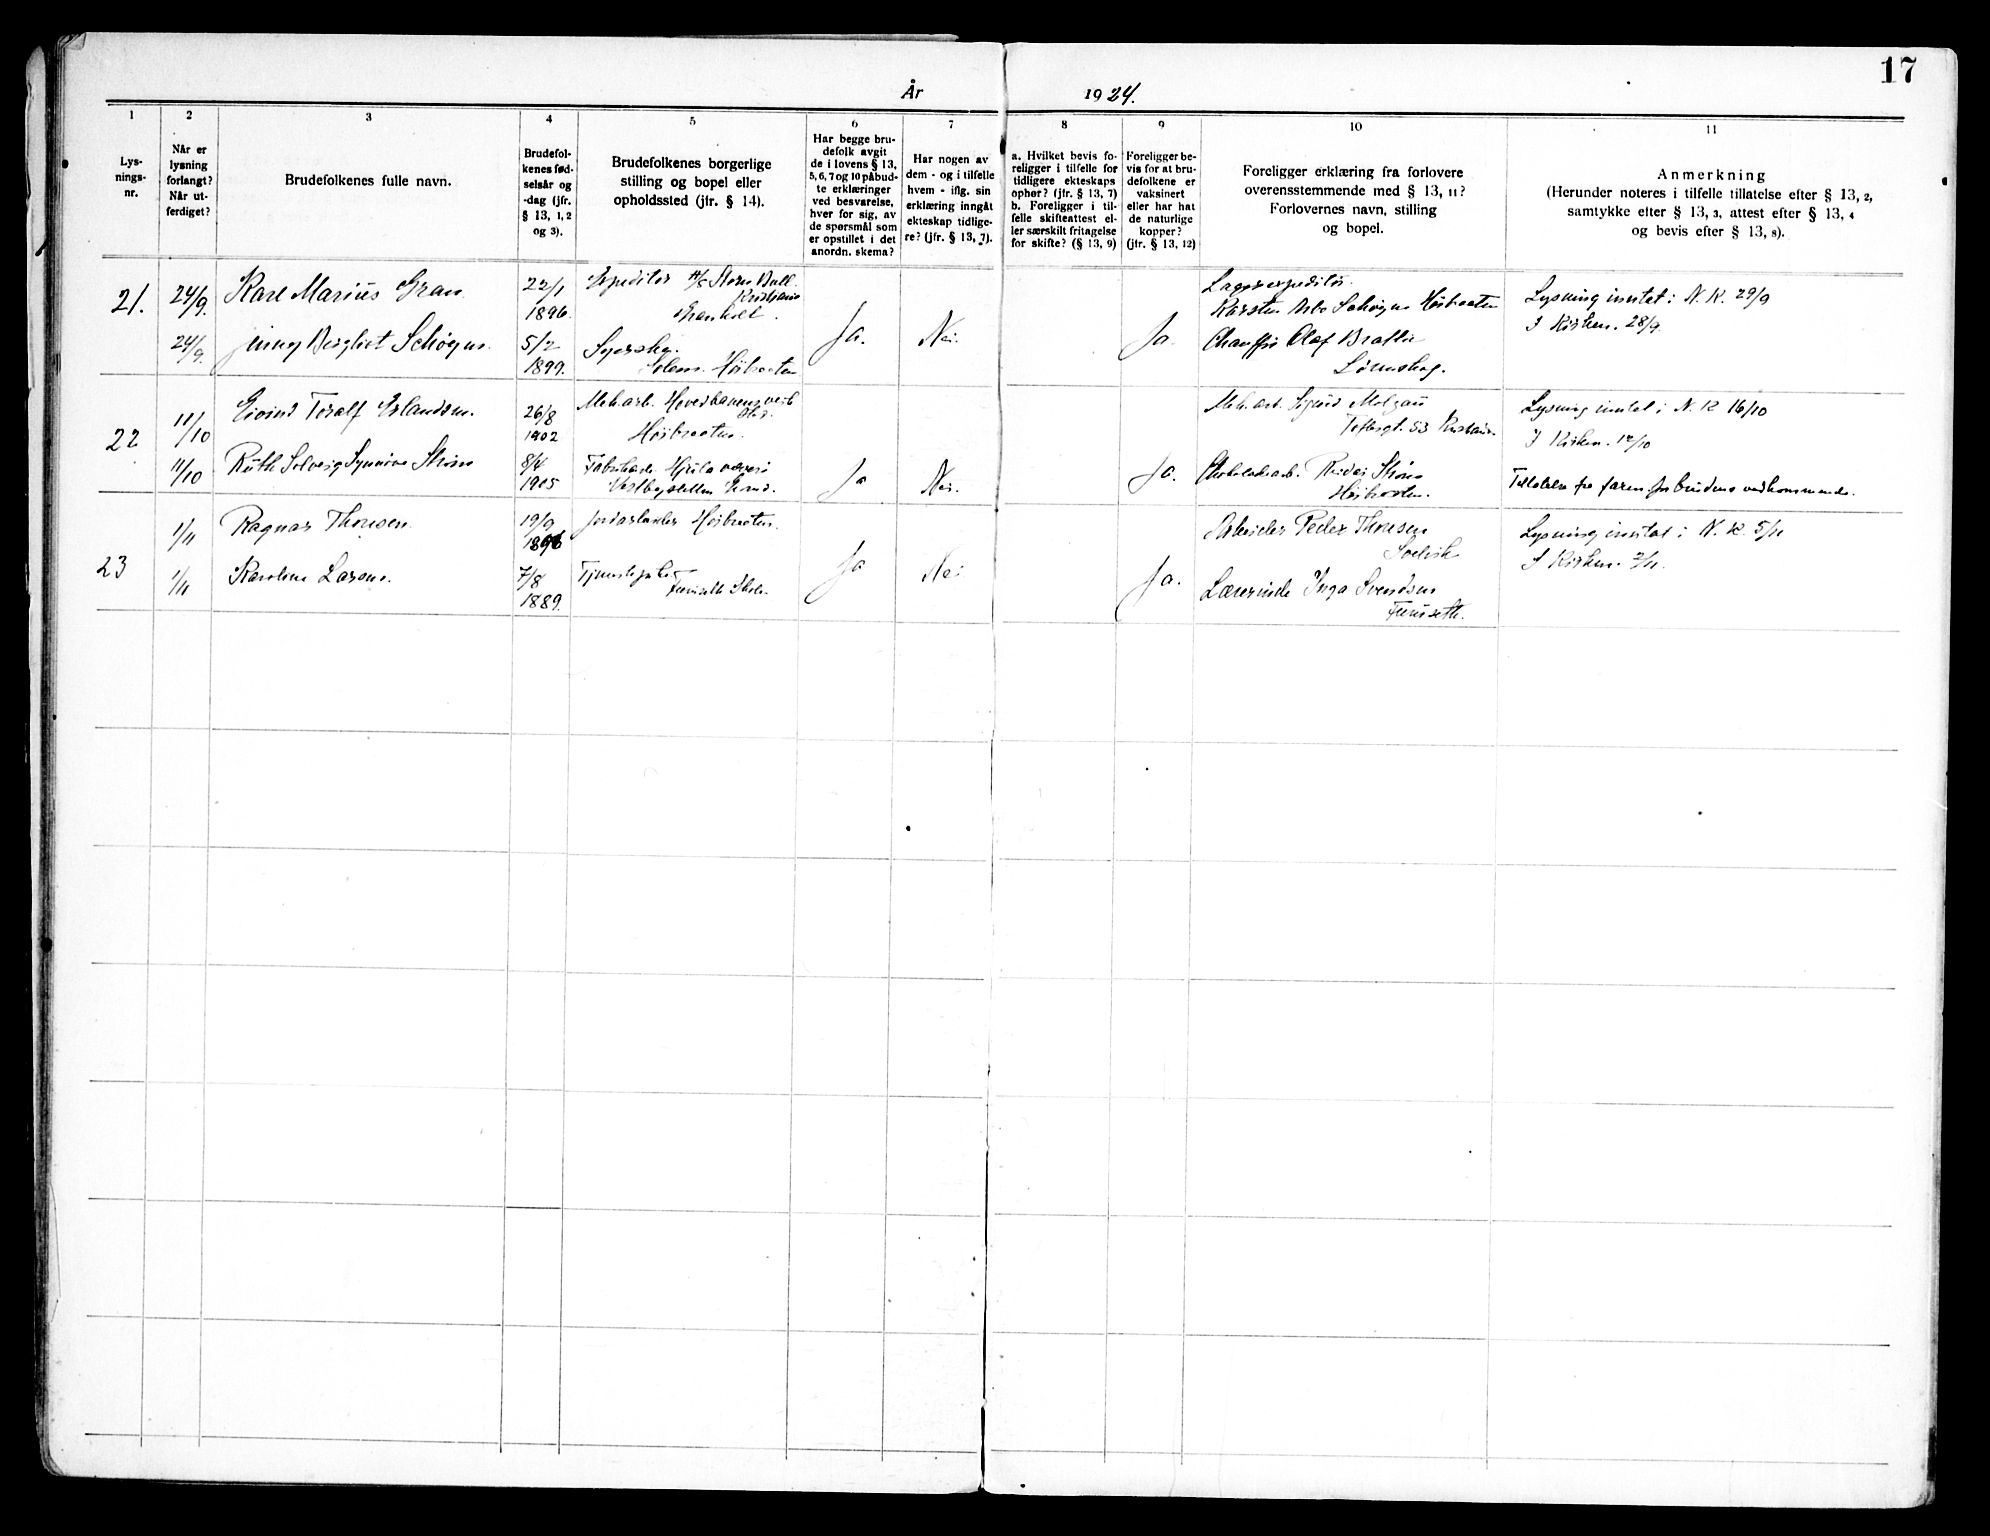 17
År 1924.
1 2 3 4 5 6 7 8 9 10 11
Lys-
nings-
nr.
Når er
lysning
forlangt?
Når ut-
ferdiget?
Brudefolkenes fulle navn.
Brudefol-
kenes fød-
selsår og
-dag (jfr.
§ 13, 1, 2
og 3).
Brudefolkenes borgerlige
stilling og bopel eller
opholdssted (jfr. § 14).
Har begge bru-
defolk avgit
de i lovens § 13,
5, 6, 7 og 10 påbud-
te erklæringer
ved besvarelse,
hver for sig, av
de spørsmål som
er opstillet i det
anordn. skema?
Har nogen av
dem - og i tilfelle
hvem - iflg. sin
erklæring inngåt
ekteskap tidlige-
re? (jfr. § 13, 7).
a. Hvilket bevis fo-
religger i tilfelle for
tidligere ekteskaps
ophør? (jfr. § 13, 7)
b. Foreligger i til-
felle skifteattest el-
ler særskilt fritagelse
for skifte? (§ 13, 9)
Foreligger be-
vis for at bru-
defolkene er
vaksinert
eller har hat
de naturlige
kopper?
(jfr. § 13, 12)
Foreligger erklæring fra forlovere
overensstemmende med § 13, 11?
Forlovernes navn, stilling
og bopel.
Anmerkning
(Herunder noteres i tilfelle tillatelse efter § 13, 2,
samtykke efter § 13, 3, attest efter § 13, 4
og bevis efter § 13, 8).
21.
24/9.
Karl Marius Gran
22/1
1896.
Expeditør A/S Storm Bull
Kristiania
Granholt.
24/9.
Bergliot Schøyen
5/2
1899.
Høibraaten
Ja.
Nei.
Ja.
Lagerexpeditør
Karsten Arbo Schøyen Høibraaten
Chauffør Olaf
Lørenskog.
Lysning inntat i N. K. 29/9
I Kirken. 28/9.
22
11/10
Eivind Toralf Erlandsen.
26/8
1902
Mek.arb.
Høibraaten.
11/10
Ruth Solveig Synnøve Strøm
8/4
1905
Fabrikarb. Hjula væveri
Ja
Nei.
Ja.
Mek. arb. Sigurd
Toftesgt. 53 Kristiania
Chokoladearb. Reidar Strøm
Høibraaten.
Lysning inntat i N. K 16/10
I Kirken. 12/10
Tillatelse fra faren for brudens vedkommende.
23
1/11
Ragnar Thoresen.
19/9
1896
Jordarbeider Høibraaten.
1/11
Karoline Larsen.
7/8
1889.
Tjenestepike
Furuseth Skole.
Ja
Nei
Ja.
Arbeider Peder Thoresen
Lærerinde Inga Svendsen
Furuseth.
Lysning inntat i N. K. 5/11
I Kirken. 2/11.